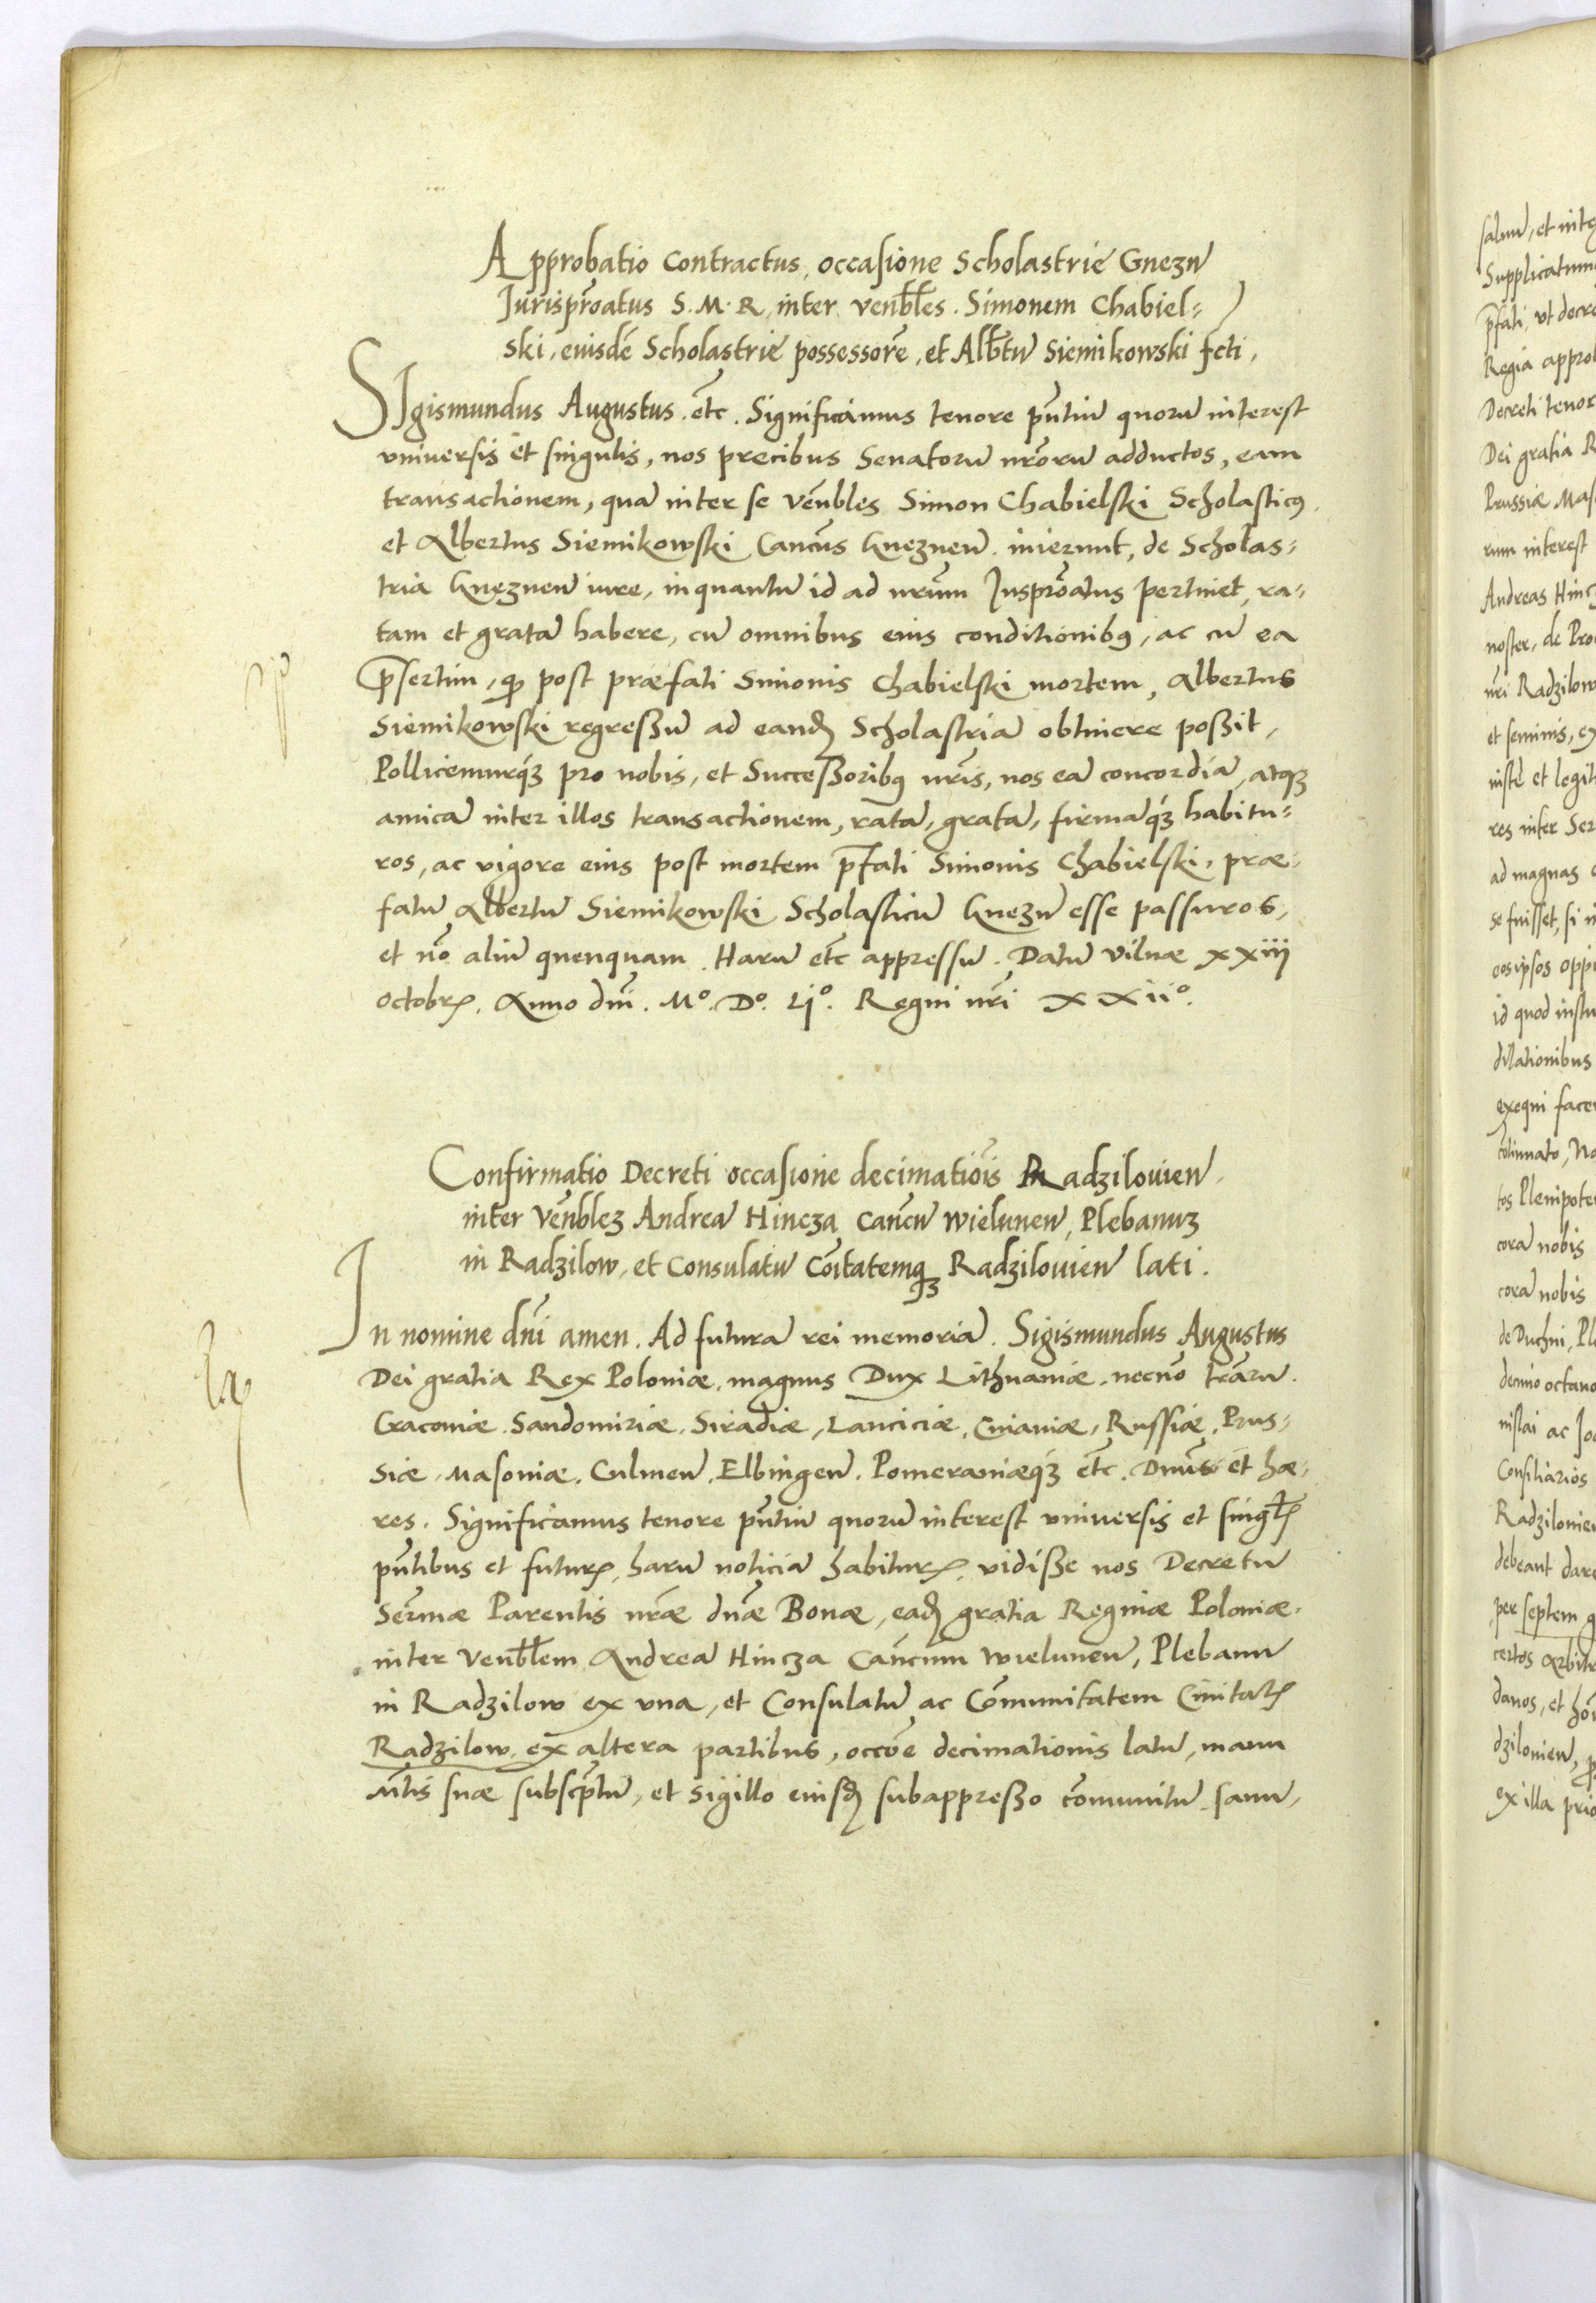 Approbatio Contractus, occasione Scholastrie Gnezn̄
Jurispr̄oatus S. M. R. inter venb̄les. Simonem Chabiel=
ski, eiusdē Scholastrie possessorē, et Alb̄tū Siemikowski fcti.
SIgismundus Augustus. etc̄. Significamus tenore pn̄tiū quorū interest
vniuersis et singulis, nos precibus Senatorū nr̄orū adductos, eam
transactionem, quā inter se Vēnbles Simon Chabielski Scholasticꝰ
et Albertus Siemikowski Canc̄us Gneznen̄. inierunt, de Scholas=
tria Gneznen̄ iure, inquantū id ad nr̄um Juspr̄oatus pertinet, ra=
tam et gratā habere, cū omnibus eius conditionibꝰ, ac cū ea
p̄sertim, qꝫ post præfati Simonis Chabielski mortem, Albertus
Siemikowski regreßū ad eandꝫ Scholastriā obtinere poßit,
Pollicemurqꝫ pro nobis, et Successoribꝰ nr̄is, nos eā concordiā, atqꝫ
amicā inter illos transactionem, ratā, gratā, firmāqꝫ habitu=
ros, ac vigore eius post mortem p̄fati Simonis Chabielski, præ=
fatū Albertū Siemikowski Scholasticū Gnezn̄ esse passuros,
et nō aliū quenquam. Harū etc̄ appressū. Datū Vilnæ xxiij
octobrꝭ. Anno dn̄i. Mº. Dº. Ljº. Regni nr̄i XXiiº.
Confirmatio Decreti occasione decimatiōis Radzilouien̄.
inter Vēnblez Andreā Hincza Canc̄ū Wielunen̄, Plebanuz
in Radzilow, et Consulatū Cōitatemqꝫ Radzilouien̄ lati.
In nomine dn̄i amen. Ad futurā rei memoriā. Sigismundus Augustus
Dei gratia Rex Poloniæ, magnus Dux Lithuaniæ, necnō tr̄arū.
Cracouiæ. Sandomiriæ. Siradiæ, Lanciciæ, Cuiauiæ, Russiæ. Prus=
siæ, Masouiæ. Culmen̄. Elbingen̄. Pomeraniæqꝫ etc̄. Dnūs et hæ=
res. Significamus tenore pn̄tiū quorū interest vniuersis et singl̄ꝭ
pn̄tibus et futurꝭ, harū noticiā habiturꝭ, vidiße nos Decretū
Serm̄æ Parentis nr̄æ dn̄æ Bonæ, eadꝫ gratia Reginæ Poloniæ.
inter Venb̄lem Andreā Hincza Canc̄um Wielunen̄, Plebanū
in Radzilow ex vna, et Consulatū ac Cōmunitatem Ciuitatꝭ
Radzilow. ex altera partibus, occōe decimationis latū, manu
Mtīs suæ subscp̄tū, et sigillo eiusdꝫ subappreßo cōmunitū, sanū,
salūū, et
Supplicatum
p̄fati, vt
Regia
Decreti tenor
Dei gratia
Prussiæ
rum interest
Andreas
noster, de
nr̄i
et
iustè et
res inter
ad magnas
se fuisset, si
eos ipsos
id quod
dilationibus
exequi
tos
corā nobis
corā nobis
de Duchni,
decimo
ac
Consiliarios
debeant
per septem
certos
danos, et
ex illa